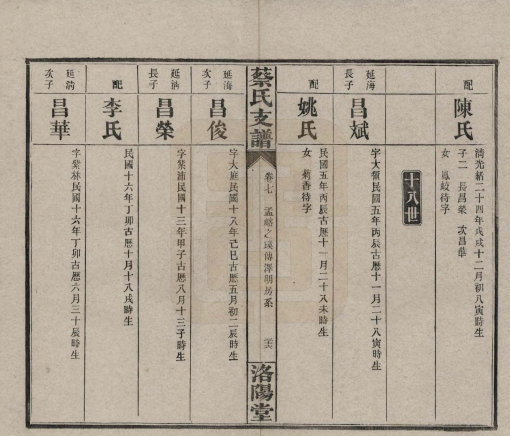 配
陳氏
清光緒二十四年戊戌十二月初八寅時生
子二 長昌榮 次昌華
女 鳳岐待字
十八世
延海
長子
昌斌
字大領民國五年丙辰古曆十一月二十八寅時生
配
姚氏
民國五年丙辰古曆十一月二十八未時生
女 菊香待字
蔡氏支譜
卷七
洛陽堂
延海
次子
昌俊
字大庭民國十八年己巳古曆五月初二辰時生
延清
長子
昌榮
字紫浦民國十三年甲子古曆八月十三子時生
配
李氏
民國十六年丁卯古曆十月十八戌時生
延清
次子
昌華
字紫林民國十六年丁卯古曆六月三十辰時生